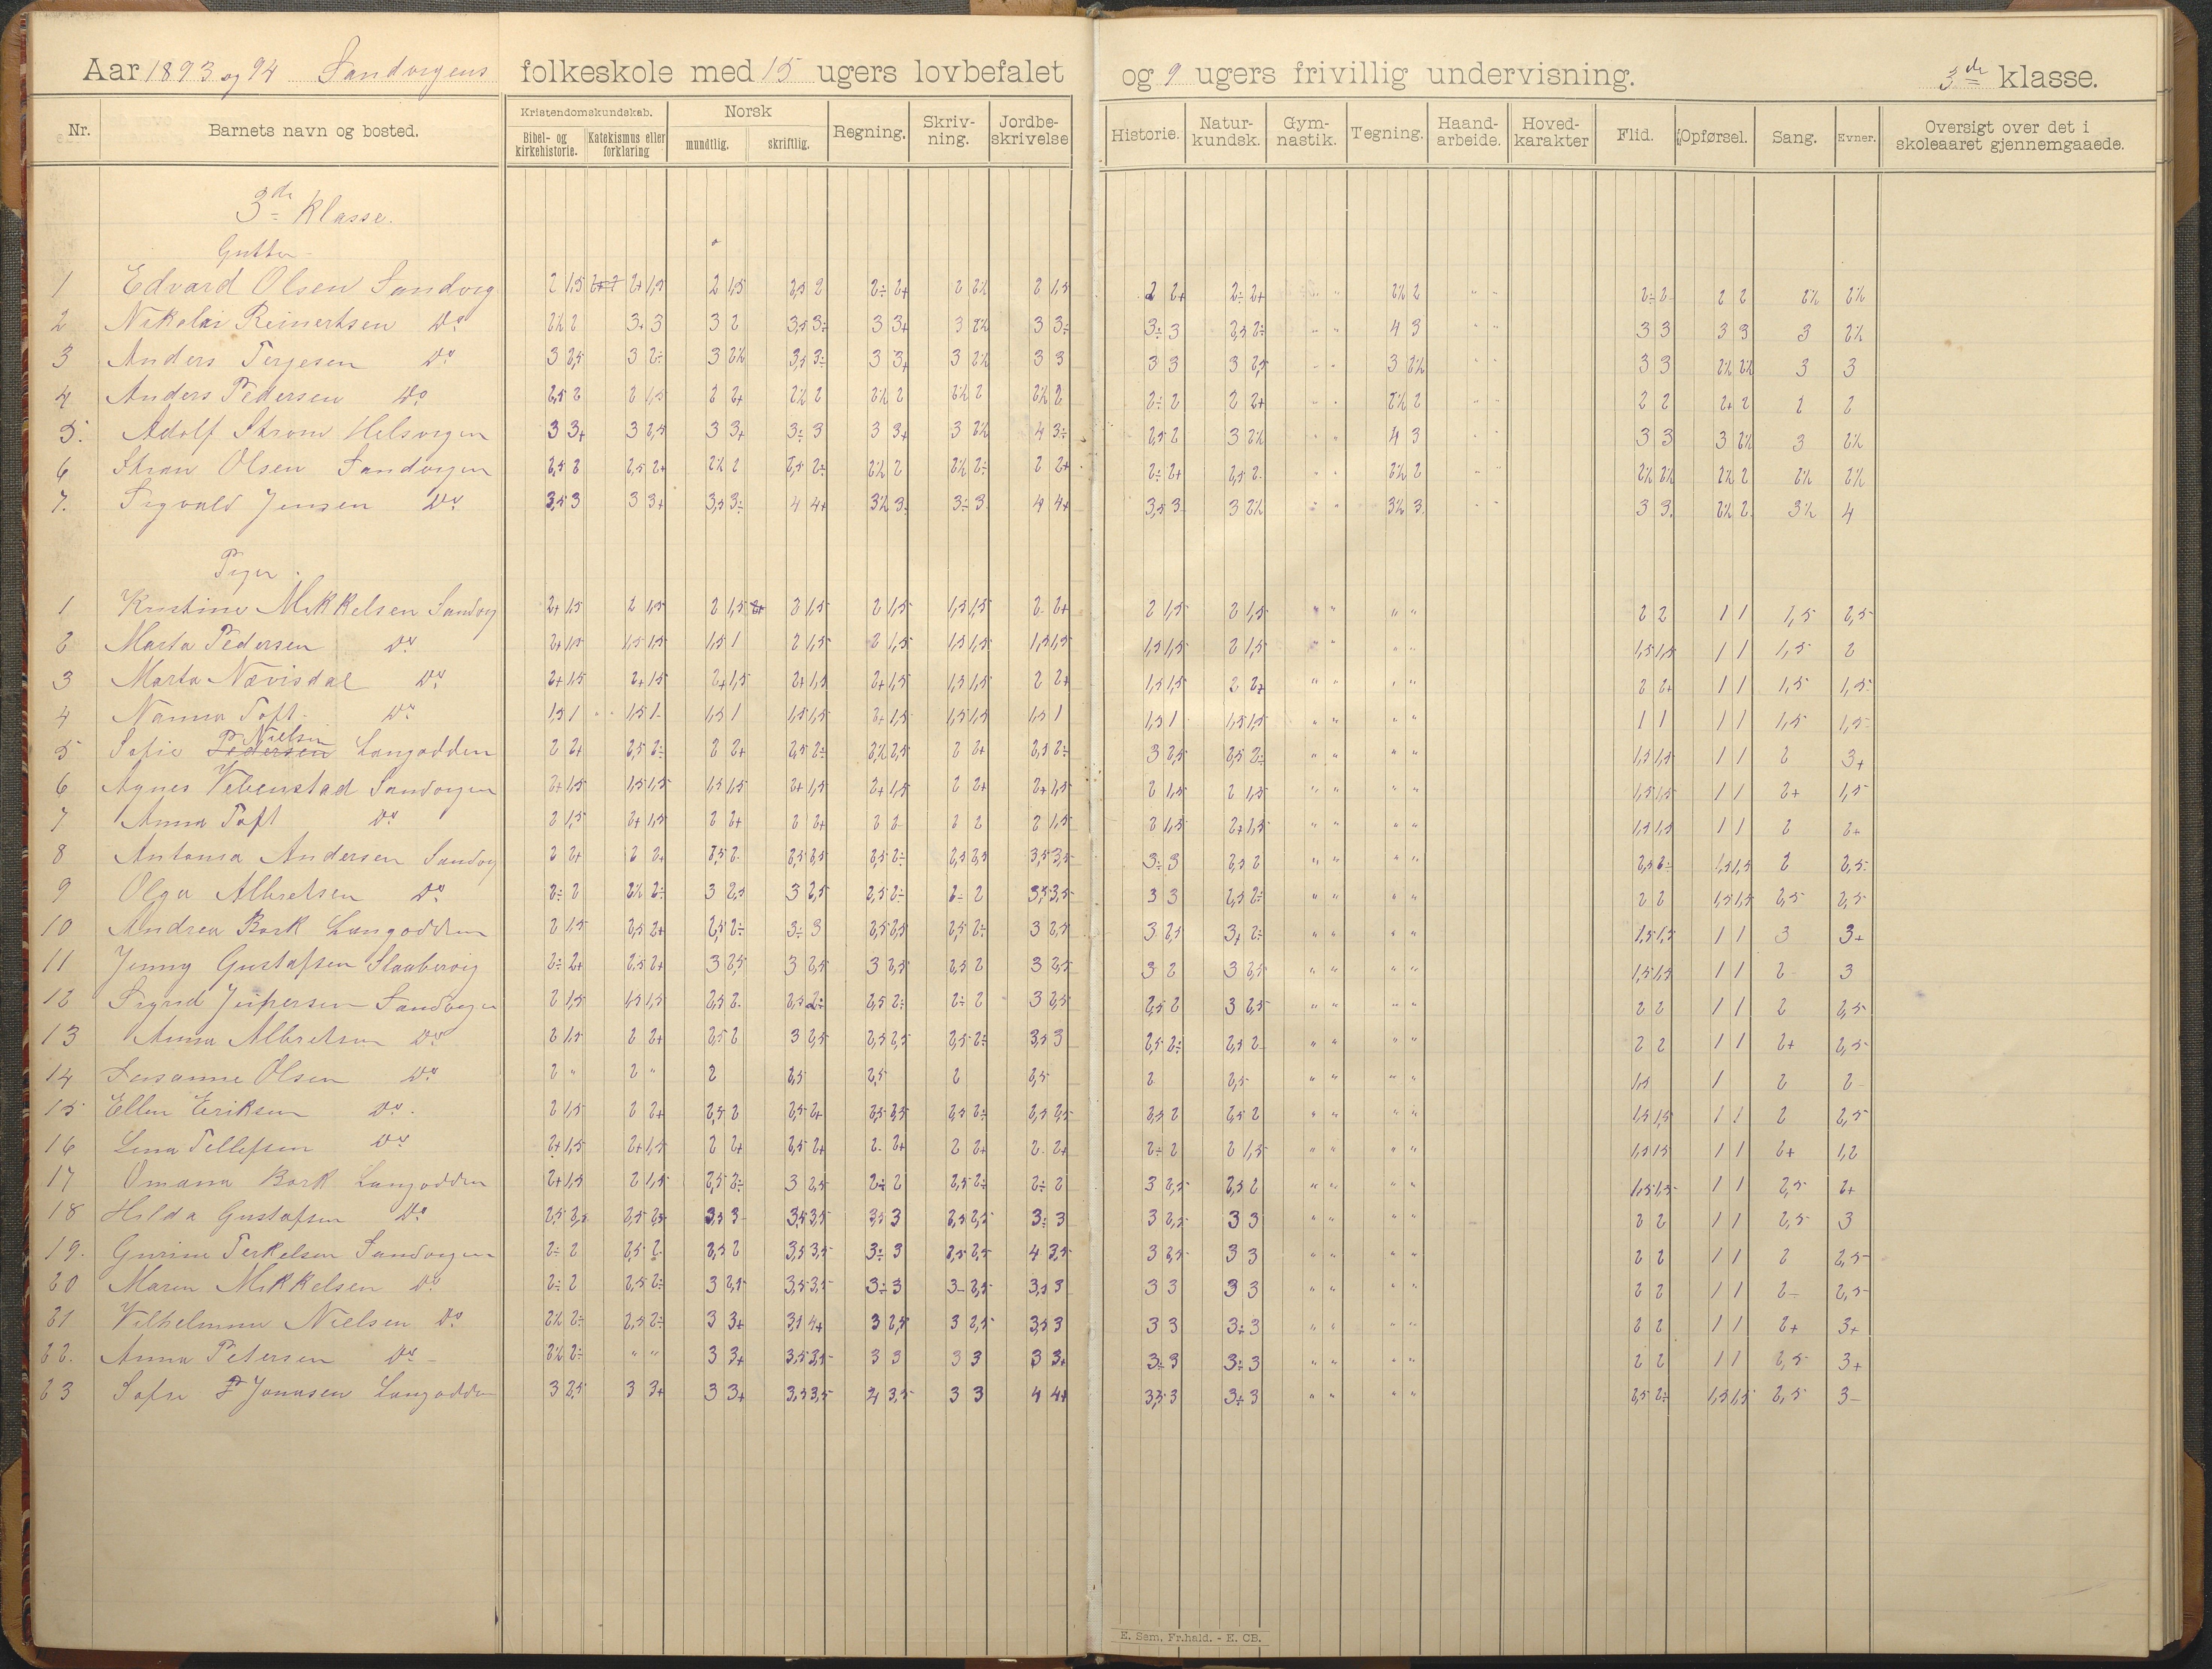 Aar 1893 og 94 Sandvigens folkeskole med 15 ugers lovbefalet og 9 ugers frivillig undervisning. 3de klasse.
Nr. Barnets navn og bosted. Kristendomskundskab. Bibel- og kirkehistorie. Katekismus eller forklaring Norsk mundtlig. skriftlig. Regning. Skriv-ning. Jordbe-skrivelse Historie. Natur-kundsk. Gym-nastik. Tegning. Haand-arbeide. Hoved-karakter Flid. Opførsel. Sang. Evner. Oversigt over det i skoleaaret gjennemgaaede.
3de Klasse.
Gutter
1 Edvard Olsen Sandvig 2 1,5 2+ 1,5 2 1,5 2,5 2 2÷ 2+ 2 2½ 2 1,5 2 2+ 2÷ 2+ " " 2½ 2 " " 2÷ 2 2 2 2½ 2½
2 Nikolai Reinertsen Do 2½ 2 3+ 3 3 2 3,5 3÷ 3 3+ 3 2½ 3 3÷ 3÷ 3 2,5 2÷ " " 4 3 " " 3 3 3 3 3 2½
3 Anders Terjesen Do 3 2,5 3 2÷ 3 2½ 3,5 3÷ 3 3+ 3 2½ 3 3 3 3 3 2,5 " " 3 2½ " " 3 3 2½ 2½ 3 3
4 Anders Pedersen Do 2,5 2 2 1,5 2 2+ 2½ 2 2½ 2 2½ 2 2½ 2 2÷ 2 2 2+ " " 2½ 2 " " 2 2 2+ 2 2 2
5. Adolf Strøm Helsvigen 3 3+ 3 2,5 3 3+ 3÷ 3 3 3+ 3 2½ 4 3÷ 2,5 2 3 2½ " " 4 3 " " 3 3 3 2½ 3 2½
6 Olsen Sandvigen 2,5 2 2,5 2+ 2½ 2 2,5 2÷ 2½ 2 2½ 2÷ 2 2+ 2÷ 2+ 2,5 2 " " 2½ 2 " " 2½ 2½ 2½ 2 2½ 2½
7. Sigvald Jensen Do 3,5 3 3 3+ 3,5 3÷ 4 4+ 3½ 3 3÷ 3 4 4+ 3,5 3 3 2½ " " 3½ 3 " " 3 3 2½ 2 3½ 4
Piger
1 Kristine Mikkelsen Sandvig 2+ 1,5 2 1,5 2 1,5 2 1,5 2 1,5 1,5 1,5 2 2+ 2 1,5 2 1,5 " " " " 2 2 1 1 1,5 2,5
2 Marta Pedersen Do 2+ 1,5 1,5 1,5 1,5 1 2 1,5 2 1,5 1,5 1,5 1,5 1,5 1,5 1,5 2 1,5 " " " " 1,5 1,5 1 1 1,5 2
3 Marta Nævisdal Do 2+ 1,5 2+ 1,5 2+ 1,5 2+ 1,5 2+ 1,5 1,5 1,5 2 2+ 1,5 1,5 2 2+ " " " " 2 2+ 1 1 1,5 1,5
4 Nanna Toft Do 1,5 1 1,5 1 1,5 1 1,5 1,5 2+ 1,5 1,5 1,5 1,5 1 1,5 1 1,5 1,5 " " " " 1 1 1 1 1,5 1,5
5 Sofie Pedersen Nielsen Langodden 2 2+ 2,5 2÷ 2 2+ 2,5 2÷ 2½ 2,5 2 2+ 2,5 2÷ 3 2,5 2,5 2÷ " " " " 1,5 1,5 1 1 2 3+
6 Agnes Vebenstad Sandvigen 2+ 1,5 1,5 1,5 1,5 1,5 2+ 1,5 2+ 1,5 2 2+ 2+ 1,5 2 1,5 2 1,5 " " " " 1,5 1,5 1 1 2+ 1,5
7 Anna Toft Do 2 1,5 2+ 1,5 2 2+ 2 2+ 2 2 2 2 2 1,5 2 1,5 2+ 1,5 " " " " 1,5 1,5 1 1 2 2+
8 Antonia Andersen Sandvig 2 2+ 2 2+ 2,5 2 2,5 2,5 2,5 2÷ 2,5 2,5 3,5 3,5 3÷ 3 2,5 2 " " " " 2,5 2÷ 1,5 1,5 2 2,5
9 Olga Albretsen Do 2÷ 2 2½ 2÷ 3 2,5 3 2,5 2,5 2÷ 2÷ 2 3,5 3,5 3 3 2,5 2÷ " " " " 2 2 1,5 1,5 2,5 2,5
10 Andrea Bork Langodden 2 1,5 2,5 2+ 2,5 2÷ 3÷ 3 2,5 2,5 2,5 2÷ 3 2,5 3 2,5 3+ 2÷ " " " " 1,5 1,5 1 1 3 3+
11 Jenny Gustafsen 2÷ 2+ 2,5 2+ 3 2,5 3 2,5 3 2,5 2,5 2 3 2,5 3 2 3 2,5 " " " " 1,5 1,5 1 1 2 3
12 Sigrid Jespersen Sandvigen 2 1,5 1,5 1,5 2,5 2 2,5 2÷ 2,5 2÷ 2÷ 2 3 2,5 2,5 2 3 2,5 " " " " 2 2 1 1 2 2,5
13 Anna Albretsen Do 2 1,5 2 2+ 2,5 2 3 2,5 2,5 2,5 2,5 2÷ 3,5 3 2,5 2÷ 2,5 2 " " " " 2 2 1 1 2+ 2,5
14 Susanne Olsen Do 2 " 2 " 2 2,5 2,5 2 2,5 2 2,5 " " " " 1,5 1 2 2
15 Ellen Eriksen Do. 2 1,5 2 2+ 2,5 2 2,5 2+ 2,5 2,5 2,5 2÷ 2,5 2,5 2,5 2 2,5 2 " " " " 1,5 1,5 1 1 2 2,5
16 Lina Tellefsen Do 2+ 1,5 2+ 1,5 2 2+ 2,5 2+ 2 2+ 2 2+ 2 2+ 2÷ 2 2 1,5 " " " " 1,5 1,5 1 1 2+ 1,2
17 Omana Bork Langodden 2+ 1,5 2 1,5 2,5 2÷ 3 2,5 2÷ 2 2,5 2÷ 2÷ 2 3 2,5 2,5 2 " " " " 1,5 1,5 1 1 2,5 2+
18 Hilda Gustafsen Do 2,5 2,5 2,5 2,5 3,5 3 3,5 3,5 3,5 3 2,5 2,5 3÷ 3 3 2,5 3 3 " " " " 2 2 1 1 2,5 3
19. Gurine Terkelsen Sandvigen 2÷ 2 2,5 2 2,5 2 3,5 3,5 3÷ 3 2,5 2,5 4 3,5 3 2,5 3 3 " " " " 2 2 1 1 2 2,5
20 Maren Mikkelsen Do 2÷ 2 2,5 2÷ 3 2,5 3,5 3,5 3÷ 3 3- 2,5 3,5 3 3 3 3 3 " " " " 2 2 1 1 2- 2,5
21 Vilhelmine Nielsen Do 2½ 2÷ 2,5 2÷ 3 3+ 3,5 4+ 3 2,5 3 2,5 3,5 3 3 3 3÷ 3 " " " " 2 2 1 1 2+ 3+
22. Anna Petersen Do 2½ 2÷ " " 3 3+ 3,5 3,5 3 3 3 3 3 3+ 3÷ 3 3÷ 3 " " " " 2 2 1 1 2,5 3+
23 Sofie Jonasen Langodden 3 2,5 3 3+ 3 3+ 3,5 3,5 4 3,5 3 3 4 4+ 3,5 3 3÷ 3 " " " " 2,5 2÷ 1,5 1,5 2,5 3-
E. Sem, Fr.hald. - E. CB.